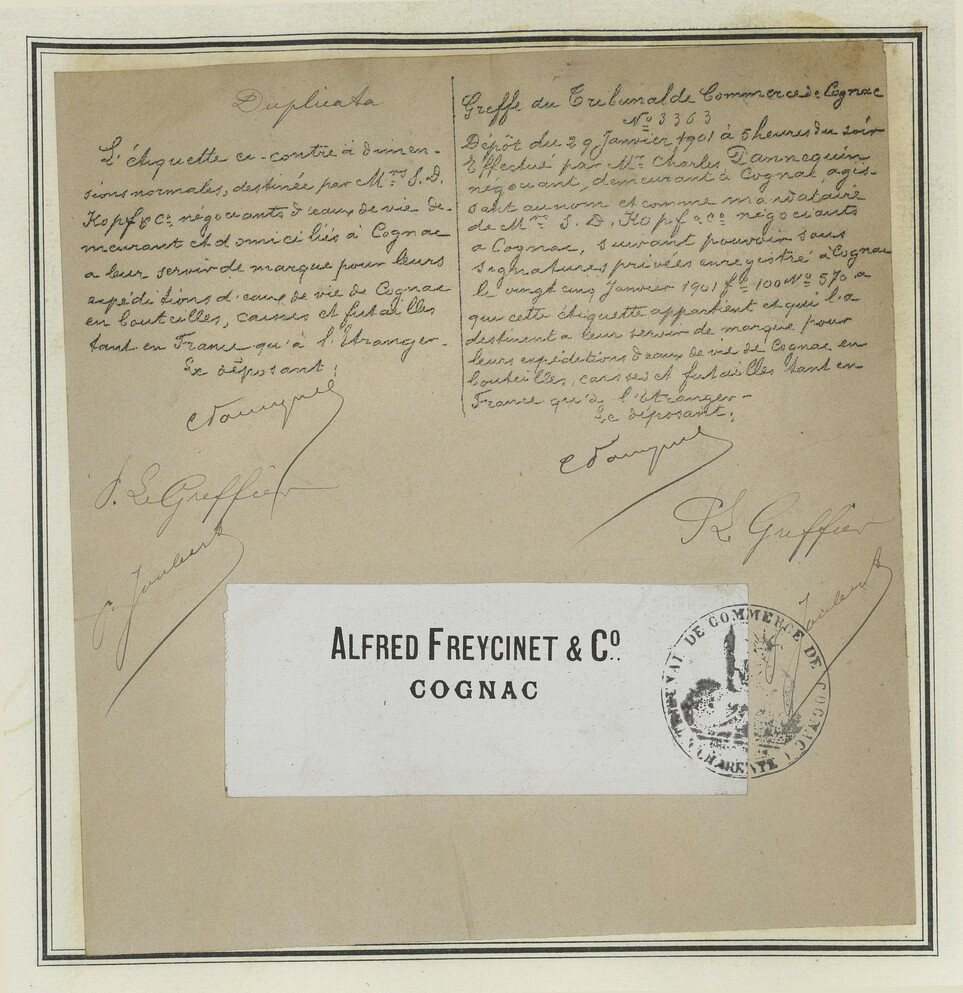 Duplicata
L'étiquette ci-contre à dimen-
sions normales, destinée par Mrs S. D.
Kopf & Co négociants d'eaux de vie de-
meurant et domiciliés à Cognac
a leur servir de marque pour leurs
expéditions d'eaux de vie de Cognac
en bouteilles, caisses et futailles
tant en France qu'à l'étranger.
Le déposant,
P. Le Greffier
Greffe du Tribunal de Commerce de Cognac
No 3363
Dépôt du 29 Janvier 1901 à 5 heures du soir
Effectué par Mr Charles Dannequin
négociant, demeurant à Cognac, agis-
sant au nom et comme mandataire
de Mrs S. D. Kopf & Co négociants
a Cognac, suivant pouvoir sous
signatures privées enregistré à Cognac
le vingt cinq Janvier 1901 fo 100 No 570 a
que cette étiquette appartient et qu'il a
destinent a leur servir de marque pour
leurs expéditions d'eaux de vie de Cognac en
bouteilles, caisses et futailles tant en
France qu'à l'étranger-
Le déposant,
P. Le Greffier
ALFRED FREYCINET & Co.
COGNAC
TRIBUNAL DE COMMERCE DE COGNAC
(CHARENTE)